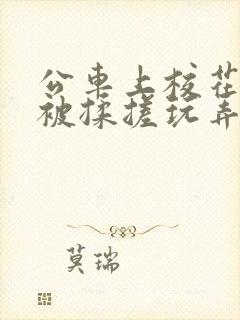 公桌上校花
被揉搓玩弄
莫瑞